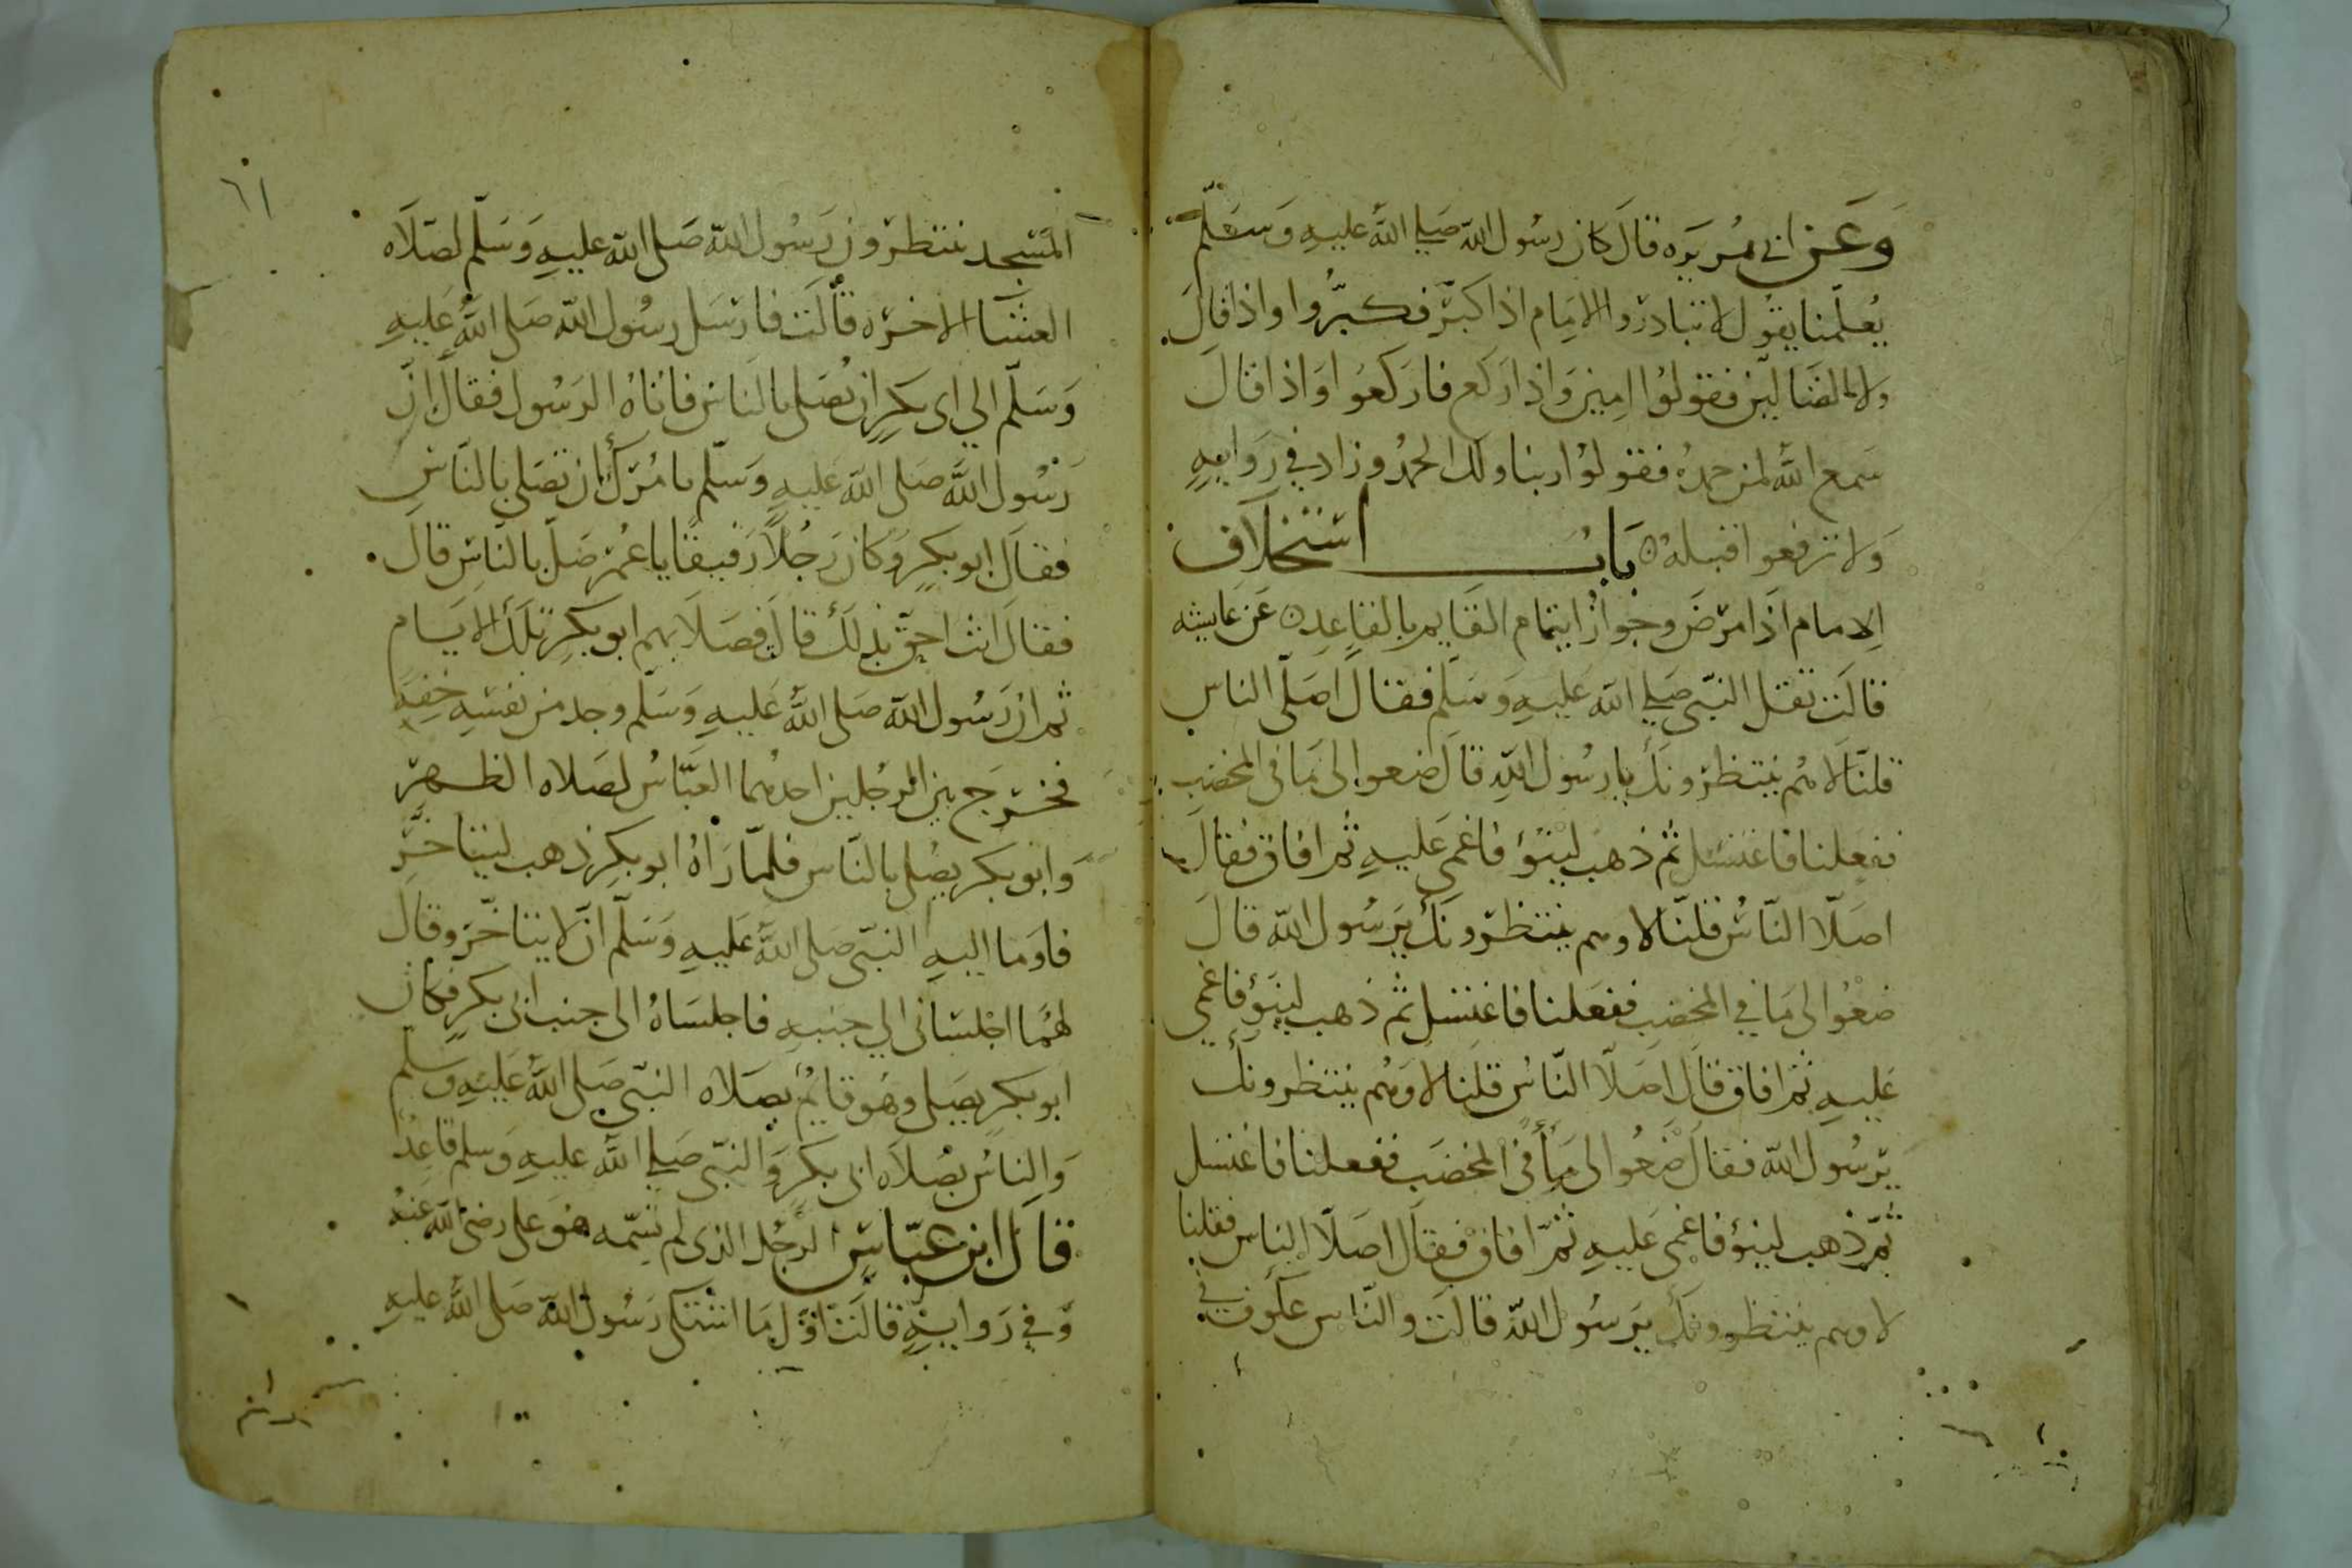 وَعَن ابى هُريَره قالَ كان رسُول الله صَلي اللهُ عليهِ وَسَلّم
يُعلّمنا يقُول لا تبادرُوا الامَام اذا كبّرَ فكبّرُوا واذا قالَ
ولا الضَالّين فقولوُا امين وَاذا ركع فاركعوا وَاذا قالَ
سَمع اللهُ لمن حمدهُ فقولوُا ربنا ولك الحمدُ وزاد في رَوايهِ
وَلا ترفعوا قبله بَابُ استخلاَف
الامام اذَا مرَضَ وجوازُ ايتمام القَايم بالقاعِد عَن عَايشه
قالَت ثقل النبّى صَلي الله عليهِ وَسَلّم فقال اَصَلّى الناس
قلنَا لا هُم ينتظرُونكَ يارسُول اللهِ قالَ ضعوا لى مَا فى المخضبِ
ففعلنا فاغتسَل ثم ذهب لينؤ فاغمى عَليهِ ثم افاق فقالَ
اصَلّا النّاسُ قلنّا لا وهم ينتظرُونكَ يَرسُول الله قالَ
ضعُوا لى مَا في المخضبِ ففعَلنا فاغتسل ثم ذهب لينؤ فاغمى
عَليهِ ثم افاق قالَ اصَلّا النّاسُ قلنا لا وَهُم ينتظرونكَ
يَرسُول الله فقالَ ضعُوا لى مَاً فى المخضَب ففعلنا فاغتسَل
ثمّ ذهب لينؤ فاغمى عَليهِ ثمّ افاق فقالَ اصَلّا الناس فقلنا
لا وهم ينتظرونكَ يَرسُول اللهّ قالت والنّاس عكوف في
٦١
المَسْجد ينتظرُون رَسُول الله صَلى الله عليهِ وَسَلّم لصَلاَه
العشَا الاخرَه قالَت فارسَل رسُول الله صَلى اللهُ عَليهِ
وَسَلّم الي ابى بكرٍ ان يُصَلى بالنَاس فاتاهُ الرَسُول فقالَ انّ
رَسُول اللهَ صَلى الله عَليهِ وَسَلّم يامُرَكَ ان تصَلى بالنَّاسِ
فقالَ ابو بكرٍ وَكان رَجُلاً رَقيقًا ياعُمر صَلّ بالنّاس قالَ
فقالَ انت احقّ بذلكَ قال فصَلاَ بهم ابو بكرٍ تلكَ الايَام
ثم ان رَسُول الله صَلى اللهُ عَليهِ وَسَلّم وجد من نفسَهِ خفِهَ
فخرَجَ بين الرَجُلين احدهُما العَبّاسُ لصَلاه الظهرّ
وَابو بكر يصُلى بالنّاس فلمّا رَاهُ ابو بكرٍ ذهب ليتاخّرَ
فاومَا اليهِ النبّى صلى اللهُ عَليهِ وَسَلّم انّ لا يتاخّرَ وقال
لهُما اجلسَانى الي جنبهِ فاجلسَاهُ الى جنب ابى بكرٍ فكان
ابو بكرٍ يصَلى وهَو قايمُ بصَلاه النبّى صَلى اللهُ عَليهِ وسلم
وَالناسُ بصُلاَه ابى بكرٍ وَالنبّى صَلي اللهُ عليهِ وَسلم قاعدُ
قالَ ابن عبّاسٍ الرَجُل الذى لم تسَمّه هوَ على رضى الله عنهُ
وَفي رَوايةٍ قالَت اوّل مَا اشتكى رَسُول الله صَلى اللهُ عليهِ